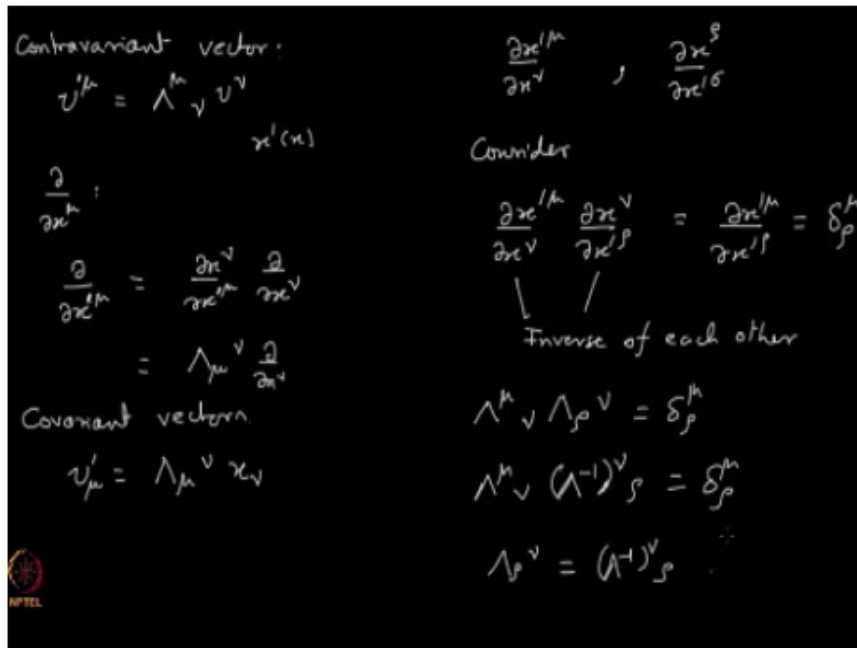 Contravariant vector:
v'^μ = Λ^μ_ν v^ν
x'(x)
∂/∂x^μ :
∂/∂x'^μ = ∂x^ν/∂x'^μ ∂/∂x^ν
= Λ_μ^ν ∂/∂x^ν
Covariant vectors
v'_μ = Λ_μ^ν x_ν
∂x'^μ/∂x^ν , ∂x^ρ/∂x'^σ
Consider
∂x'^μ/∂x^ν ∂x^ν/∂x'^ρ = ∂x'^μ/∂x'^ρ = δ^μ_ρ
Inverse of each other
Λ^μ_ν Λ_ρ^ν = δ^μ_ρ
Λ^μ_ν (Λ^-1)^ν_ρ = δ^μ_ρ
Λ_ρ^ν = (Λ^-1)^ν_ρ
NPTEL